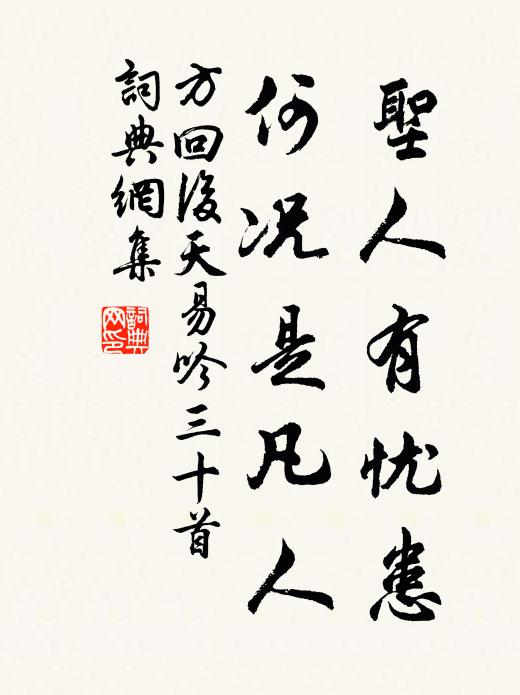 聖人有忧患
何况是凡人
方回後天易吟三十首
詞典網集
詞典网印